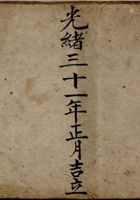 光緒三十一年正月吉立